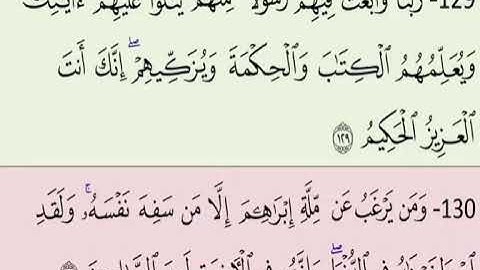 129- رَبَّنَا وَابْعَثْ فِيهِمْ رَسُولًا مِّنْهُمْ يَتْلُوا عَلَيْهِمْ ءَايَـٰتِكَ
وَيُعَلِّمُهُمُ ٱلْكِتَـٰبَ وَٱلْحِكْمَةَ وَيُزَكِّيهِمْ ۖ إِنَّكَ أَنتَ
ٱلْعَزِيزُ ٱلْحَكِيمُ ١٢٩
130- وَمَن يَرْغَبُ عَن مِّلَّةِ إِبْرَٰهِـۧمَ إِلَّا مَن سَفِهَ نَفْسَهُۥ ۚ وَلَقَدِ